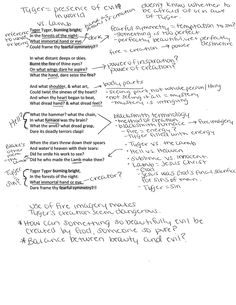 Tyger = presence of evil
in world
vs lamb
doesn't know whether to
be afraid of or in awe
of Tyger
Tyger Tyger, burning bright,
In the forests of the night;
What immortal hand or eye,
Could frame thy fearful symmetry?
fearful symmetry = temptation to sin?
something so perfect
fire = creation → power
In what distant deeps or skies,
Burnt the fire of thine eyes?
On what wings dare he aspire?
What the hand, dare seize the fire?
power of creation?
And what shoulder, & what art,
Could twist the sinews of thy heart?
And when thy heart began to beat,
What dread hand? & what dread feet?
body parts
seeing part not whole person/thing
not seeing it all = mystery
mystery is intriguing
What the hammer? what the chain,
In what furnace was thy brain?
What the anvil? what dread grasp,
Dare its deadly terrors clasp!
blacksmith terminology
method of creation
fire = energy?
Tyger filled with energy
When the stars threw down their spears
And water'd heaven with their tears:
Did he smile his work to see?
Did he who made the Lamb make thee?
Tyger vs the Lamb
Hell vs. heaven
violence vs. innocent
Lamb = Jesus Christ
God
Jesus was God's final sacrifice
for sins of man
Tyger = sin
Tyger Tyger burning bright,
In the forests of the night:
What immortal hand or eye,
Dare frame thy fearful symmetry?
creator?
Tyger?
Sin?
use of fire imagery makes
Tyger's creation seem dangerous.
* How can something so beautifully evil be
created by God, someone so pure?
* Balance between beauty and evil?